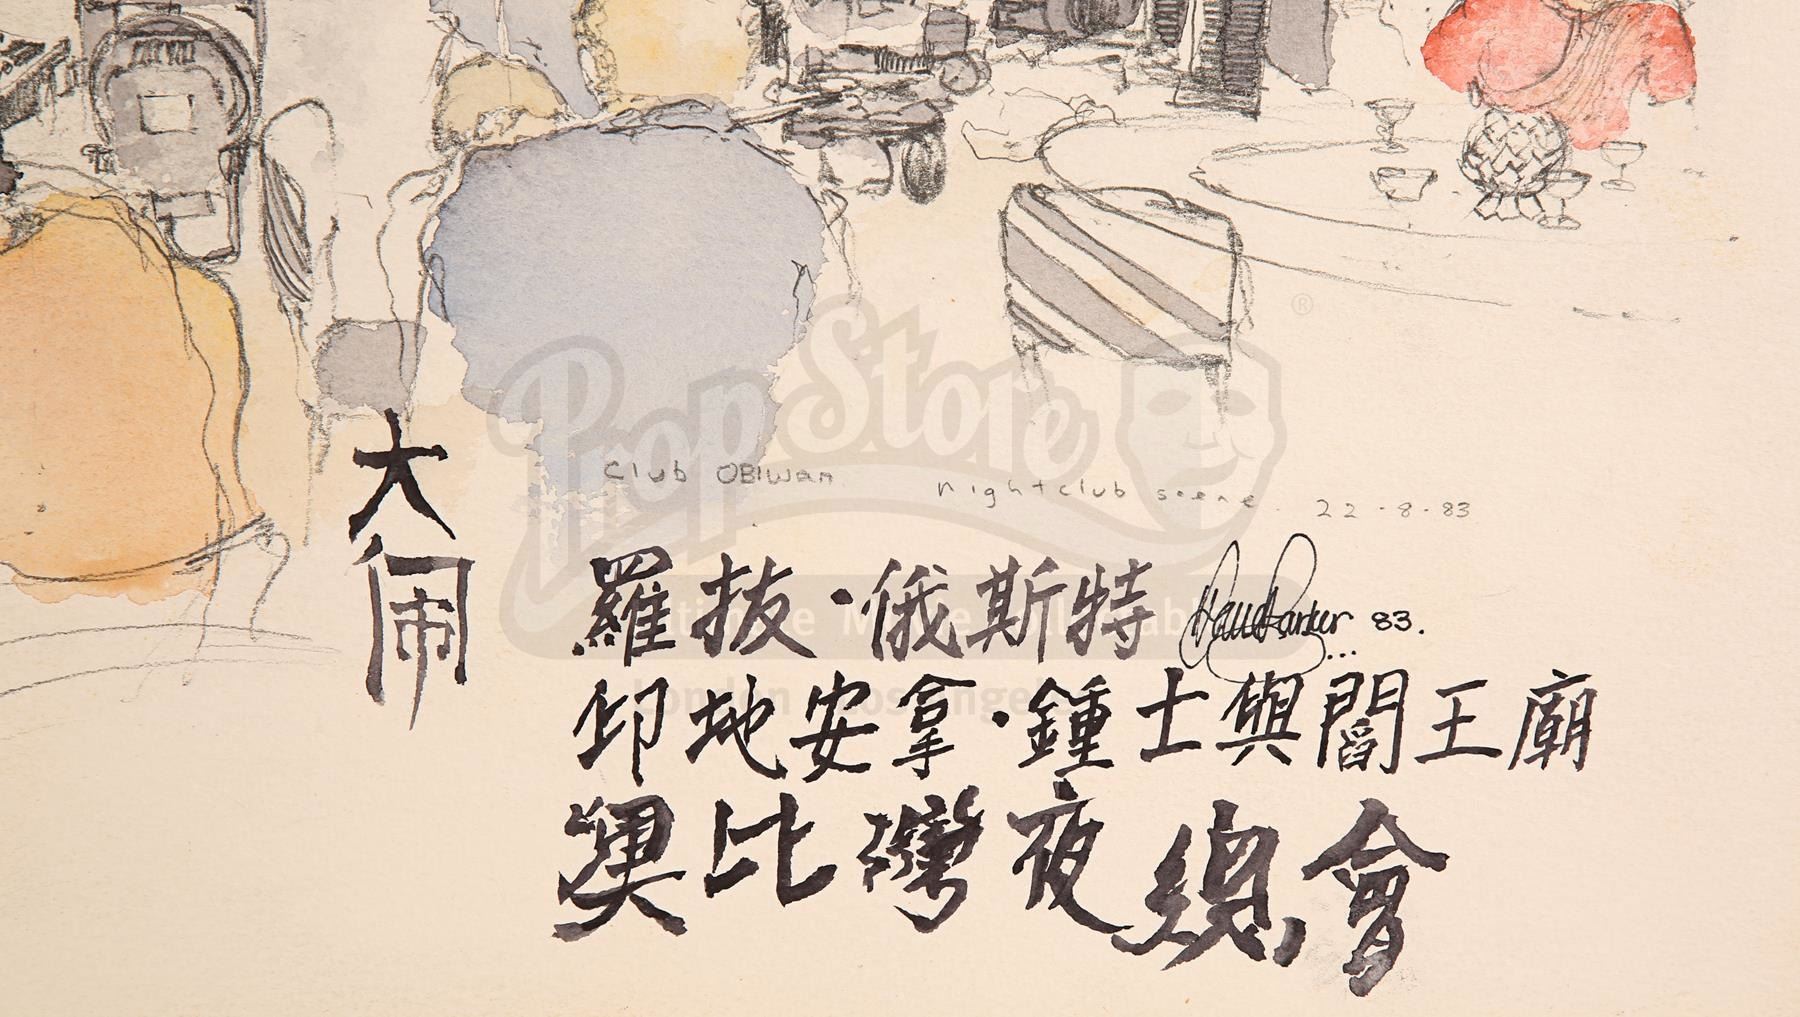 Club OBIWan nightclub scene. 22-8-83
大鬧
羅拔·俄斯特
83.
印地安拿·鍾士與閻王廟
奧比灣夜總會
Prop Store
®
Ultimate Movie Collectables
London Los Angeles